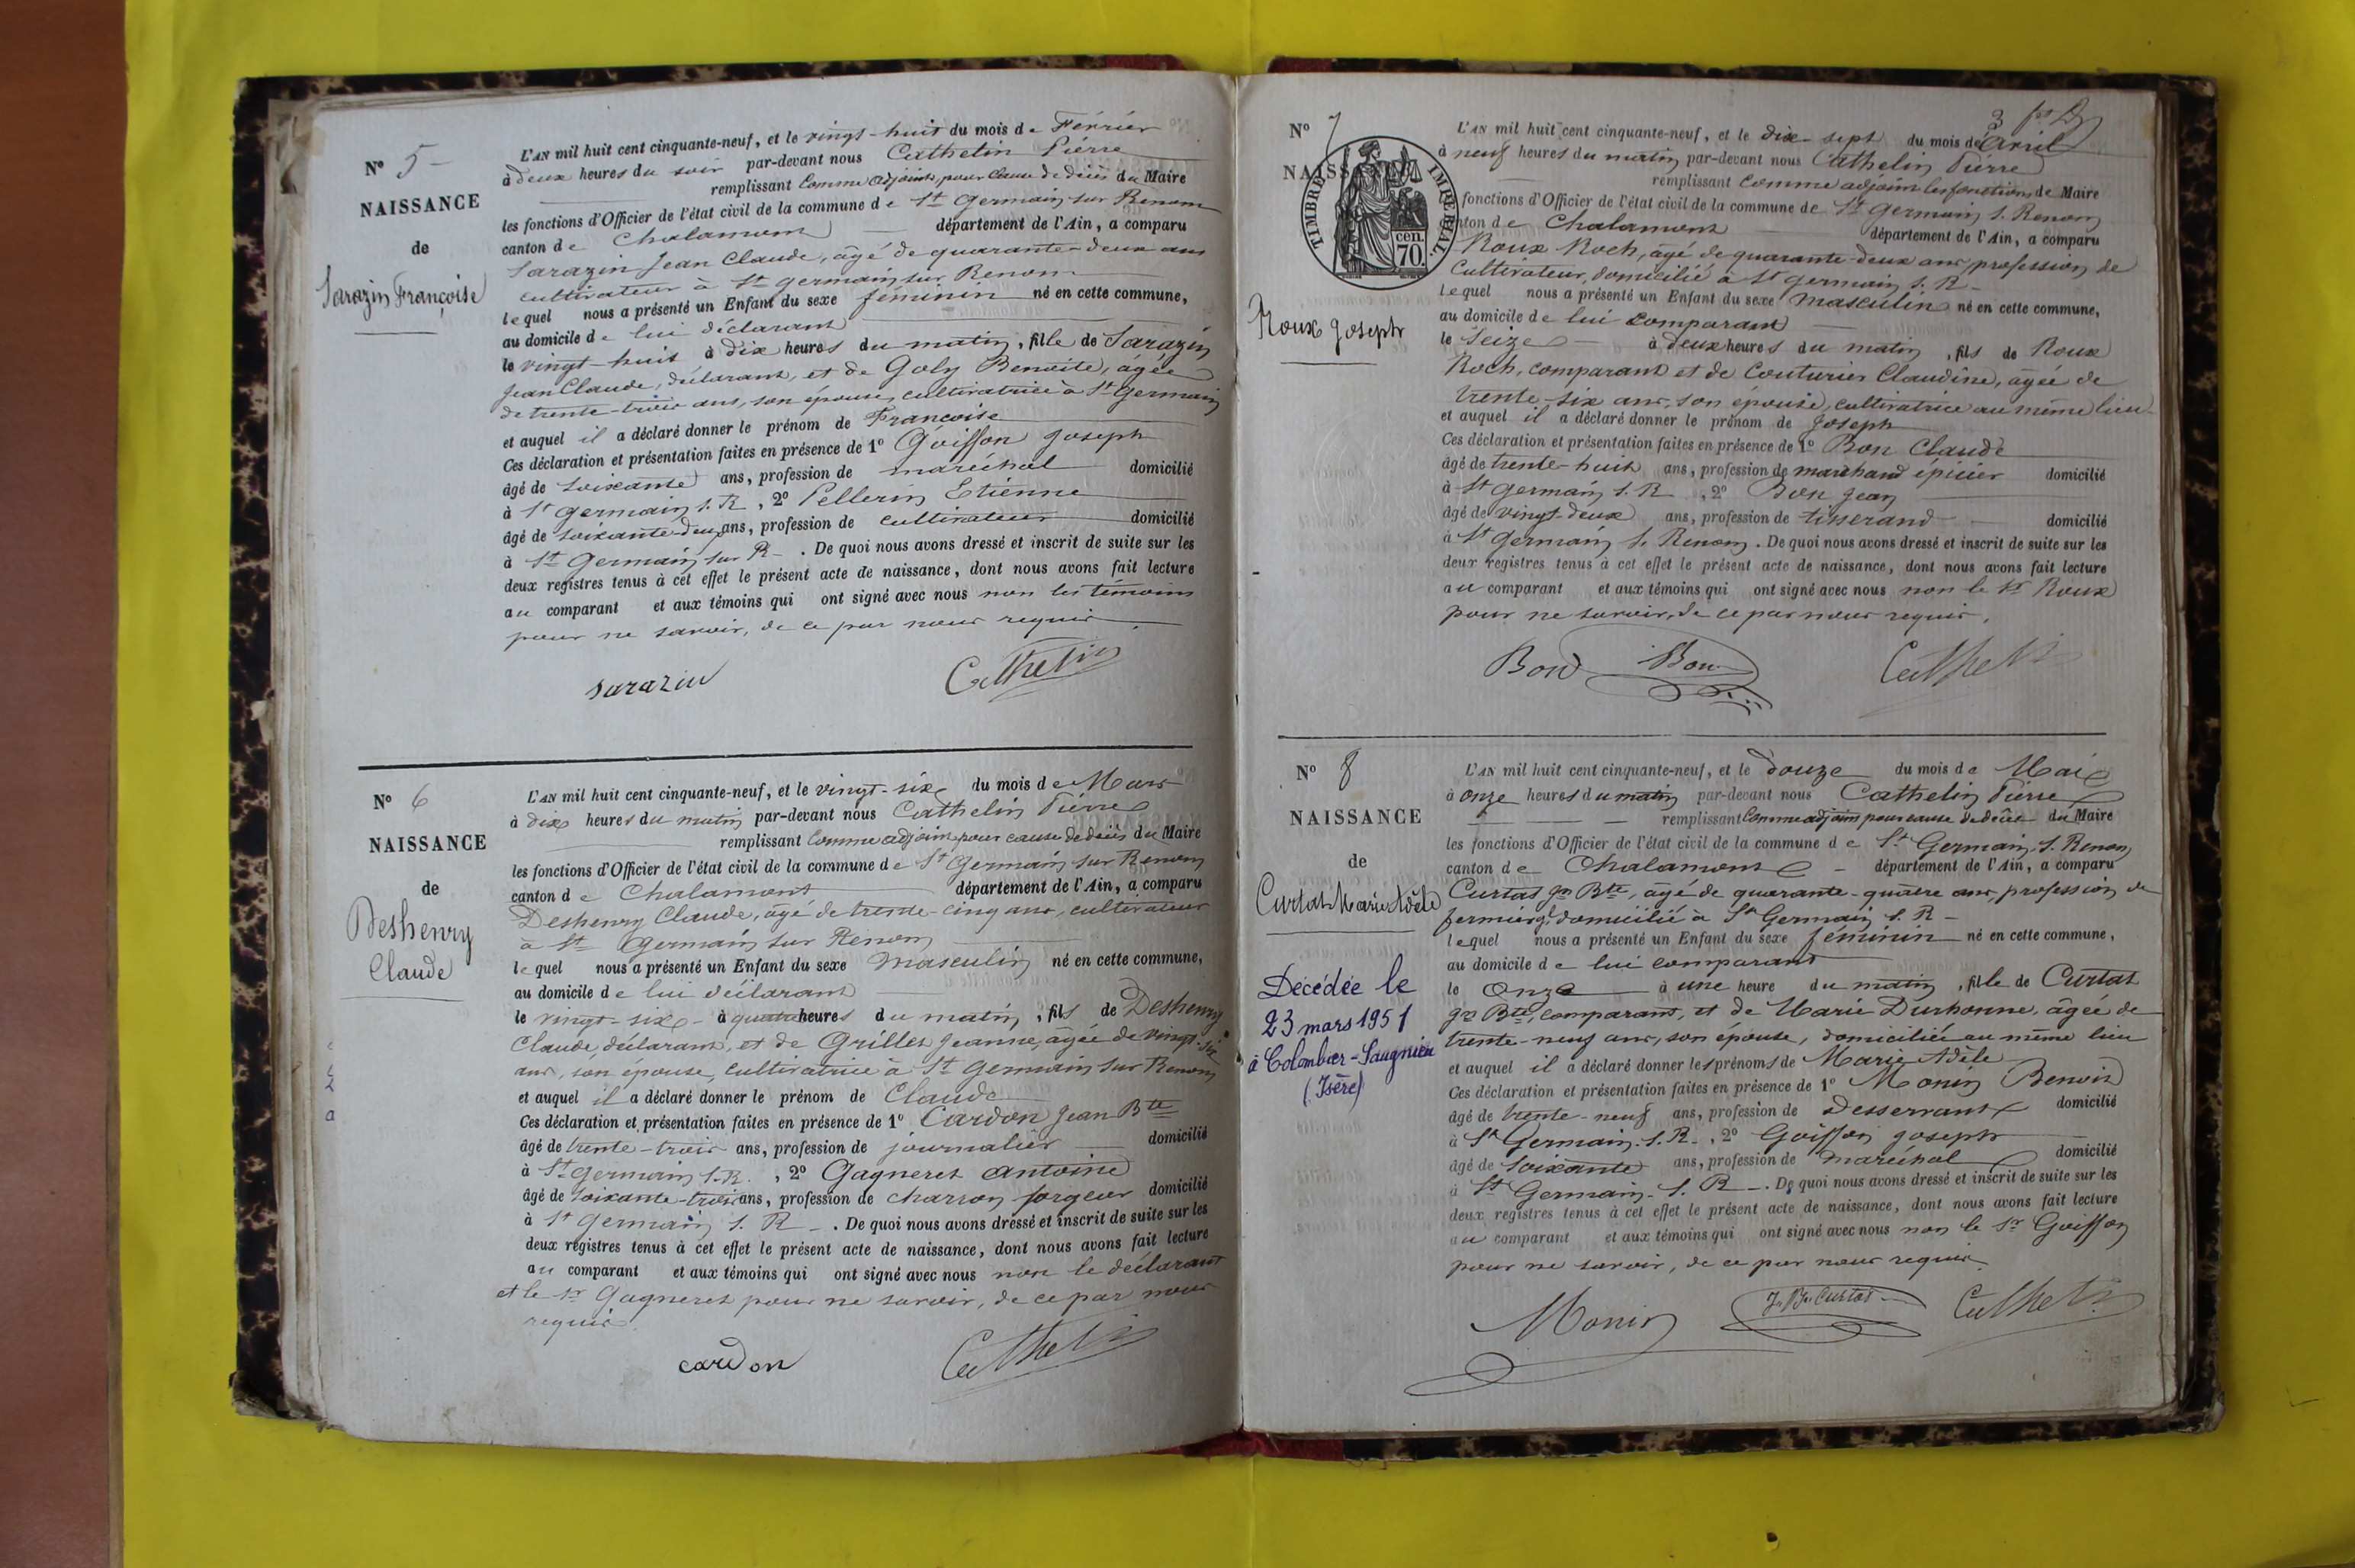 N° 5
NAISSANCE
de
Sarazin Françoise
L'AN mil huit cent cinquante-neuf, et le vingt-huit du mois de Février
à deux heures du soir par-devant nous Cathelin Pierre
remplissant comme adjoint, pour cause de décès du Maire
les fonctions d'Officier de l'état civil de la commune de St Germain sur Renom
canton de Chalamont département de l'Ain, a comparu
Sarazin Jean Claude, âgé de quarante-deux ans
cultivateur à St germain sur Renom
lequel nous a présenté un Enfant du sexe féminin né en cette commune,
au domicile de lui déclarant
le vingt-huit à dix heures du matin, fille de Sarazin
Jean Claude, déclarant, et de Goly Benoite, âgée
de trente-trois ans, son épouse, cultivatrice à St germain
et auquel il a déclaré donner le prénom de Françoise
Ces déclaration et présentation faites en présence de 1° Goiffon joseph
âgé de soixante ans, profession de maréchal domicilié
à St germain s. R, 2° Pellerin Etienne
âgé de soixante-deux ans, profession de cultivateur domicilié
à St Germain sur R. De quoi nous avons dressé et inscrit de suite sur les
deux registres tenus à cet effet le présent acte de naissance, dont nous avons fait lecture
au comparant et aux témoins qui ont signé avec nous non les témoins
pour ne savoir, de ce par nous requis.
sarazin Cathelin
N° 6
NAISSANCE
de
Deshenry
Claude
L'AN mil huit cent cinquante-neuf, et le vingt-six du mois de Mars
à dix heures du matin par-devant nous Cathelin Pierre
remplissant comme adjoint pour cause de décès du Maire
les fonctions d'Officier de l'état civil de la commune de St Germain sur Renom
canton de Chalamont département de l'Ain, a comparu
Deshenry Claude, âgé de trente-cinq ans, cultivateur
à St Germain sur Renom
lequel nous a présenté un Enfant du sexe masculin né en cette commune,
au domicile de lui déclarant
le vingt-six à quatre heures du matin, fils de Deshenry
Claude, déclarant, et de Grillet Jeanne, âgée de vingt-six
ans, son épouse, cultivatrice à St Germain sur Renom
et auquel il a déclaré donner le prénom de Claude
Ces déclaration et présentation faites en présence de 1° Cardon Jean Bte
âgé de trente-trois ans, profession de journalier domicilié
à St germain s. R., 2° Gagneret Antoine
âgé de soixante-trois ans, profession de charron forgeur domicilié
à St germain s. R. De quoi nous avons dressé et inscrit de suite sur les
deux registres tenus à cet effet le présent acte de naissance, dont nous avons fait lecture
au comparant et aux témoins qui ont signé avec nous non le déclarant
et le sr Gagneret pour ne savoir, de ce par nous
requis.
cardon Cathelin
3
N° 7
NAISSANCE
TIMBRE IMPERIAL.
cen.
70.
Roux joseph
L'AN mil huit cent cinquante-neuf, et le dix-sept du mois de avril
à neuf heures du matin, par-devant nous Cathelin Pierre
remplissant comme adjoint les fonctions de Maire
fonctions d'Officier de l'état civil de la commune de St germain s. Renom
canton de Chalamont département de l'Ain, a comparu
Roux Roch, âgé de quarante-deux ans, profession de
Cultivateur, domicilié à St germain s. R
lequel nous a présenté un Enfant du sexe masculin né en cette commune,
au domicile de lui comparant
le seize à deux heures du matin, fils de Roux
Roch, comparant et de Couturier Claudine, âgée de
trente-six ans, son épouse, cultivatrice au même lieu
et auquel il a déclaré donner le prénom de joseph
Ces déclaration et présentation faites en présence de 1° Bon Claude
âgé de trente-huit ans, profession de marchand épicier domicilié
à St germain s. R, 2° Bon jean
âgé de vingt-deux ans, profession de tisserand domicilié
à St germain s. Renom. De quoi nous avons dressé et inscrit de suite sur les
deux registres tenus à cet effet le présent acte de naissance, dont nous avons fait lecture
au comparant et aux témoins qui ont signé avec nous non le sr Roux
pour ne savoir, de ce par nous requis.
Bon Bon Cathelin
N° 8
NAISSANCE
de
Curtat Marie Adèle
Décédée le
23 mars 1951
à Colombier-Saugnieu
(Isère)
L'AN mil huit cent cinquante-neuf, et le douze du mois de Mai
à onze heures du matin par-devant nous Cathelin Pierre
remplissant comme adjoint pour cause de décès du Maire
les fonctions d'Officier de l'état civil de la commune de St Germain s. Renom
canton de Chalamont département de l'Ain, a comparu
Curtat jn Bte, âgé de quarante-quatre ans, profession de
fermier gl, domicilié à St Germain s. R
lequel nous a présenté un Enfant du sexe féminin né en cette commune,
au domicile de lui comparant
le onze à une heure du matin, fille de Curtat
jn Bte, comparant, et de Marie Durhonne, âgée de
trente-neuf ans, son épouse, domiciliée au même lieu
et auquel il a déclaré donner les prénoms de Marie Adèle
Ces déclaration et présentation faites en présence de 1° Monin Benoit
âgé de trente-neuf ans, profession de desservant domicilié
à St Germain s. R., 2° Goiffon joseph
âgé de soixante ans, profession de maréchal domicilié
à St Germain s. R. De quoi nous avons dressé et inscrit de suite sur les
deux registres tenus à cet effet le présent acte de naissance, dont nous avons fait lecture
au comparant et aux témoins qui ont signé avec nous non le sr Goiffon
pour ne savoir, de ce par nous requis
Monin J. B. Curtat Cathelin